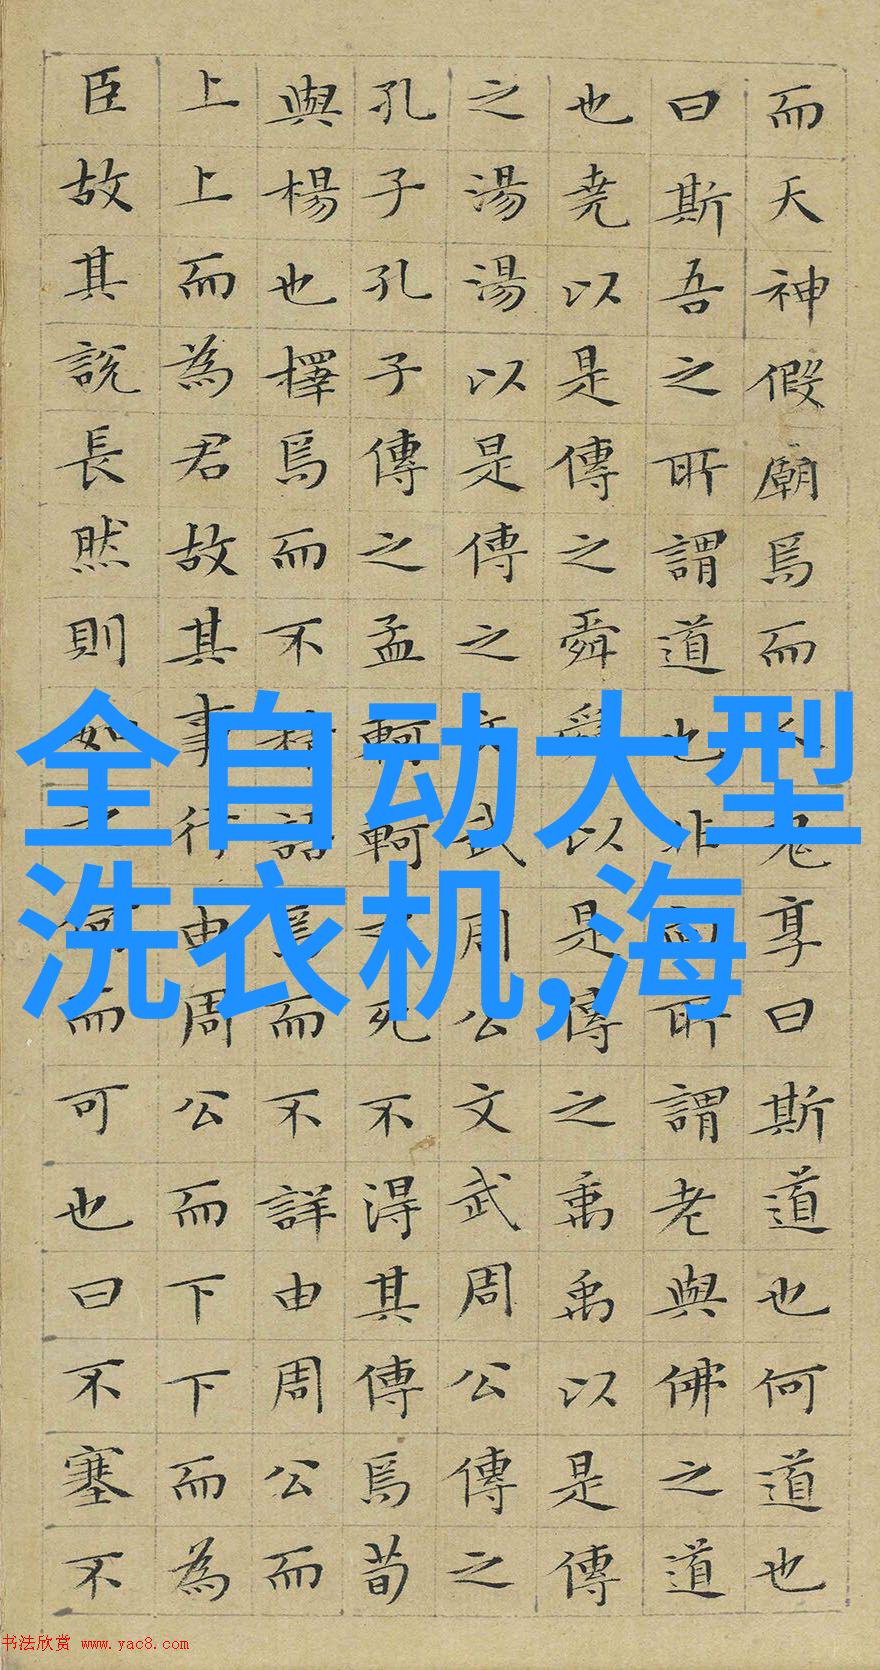 而天神假廟焉而人鬼享曰斯道也何道也
曰斯吾之所謂道也非向所謂老與佛之道
也堯以是傳之舜舜以是傳之禹禹以是傳
之湯湯以是傳之文武周公文武周公傳之
孔子孔子傳之孟軻軻之死不得其傳焉荀
與楊也擇焉而不精語焉而不詳由周公而
上上而為君故其事行由周公而下下而為
臣故其説長然則如之何而可也曰不塞不
全自动大型
洗衣机,海
书法欣赏 www.yac8.com